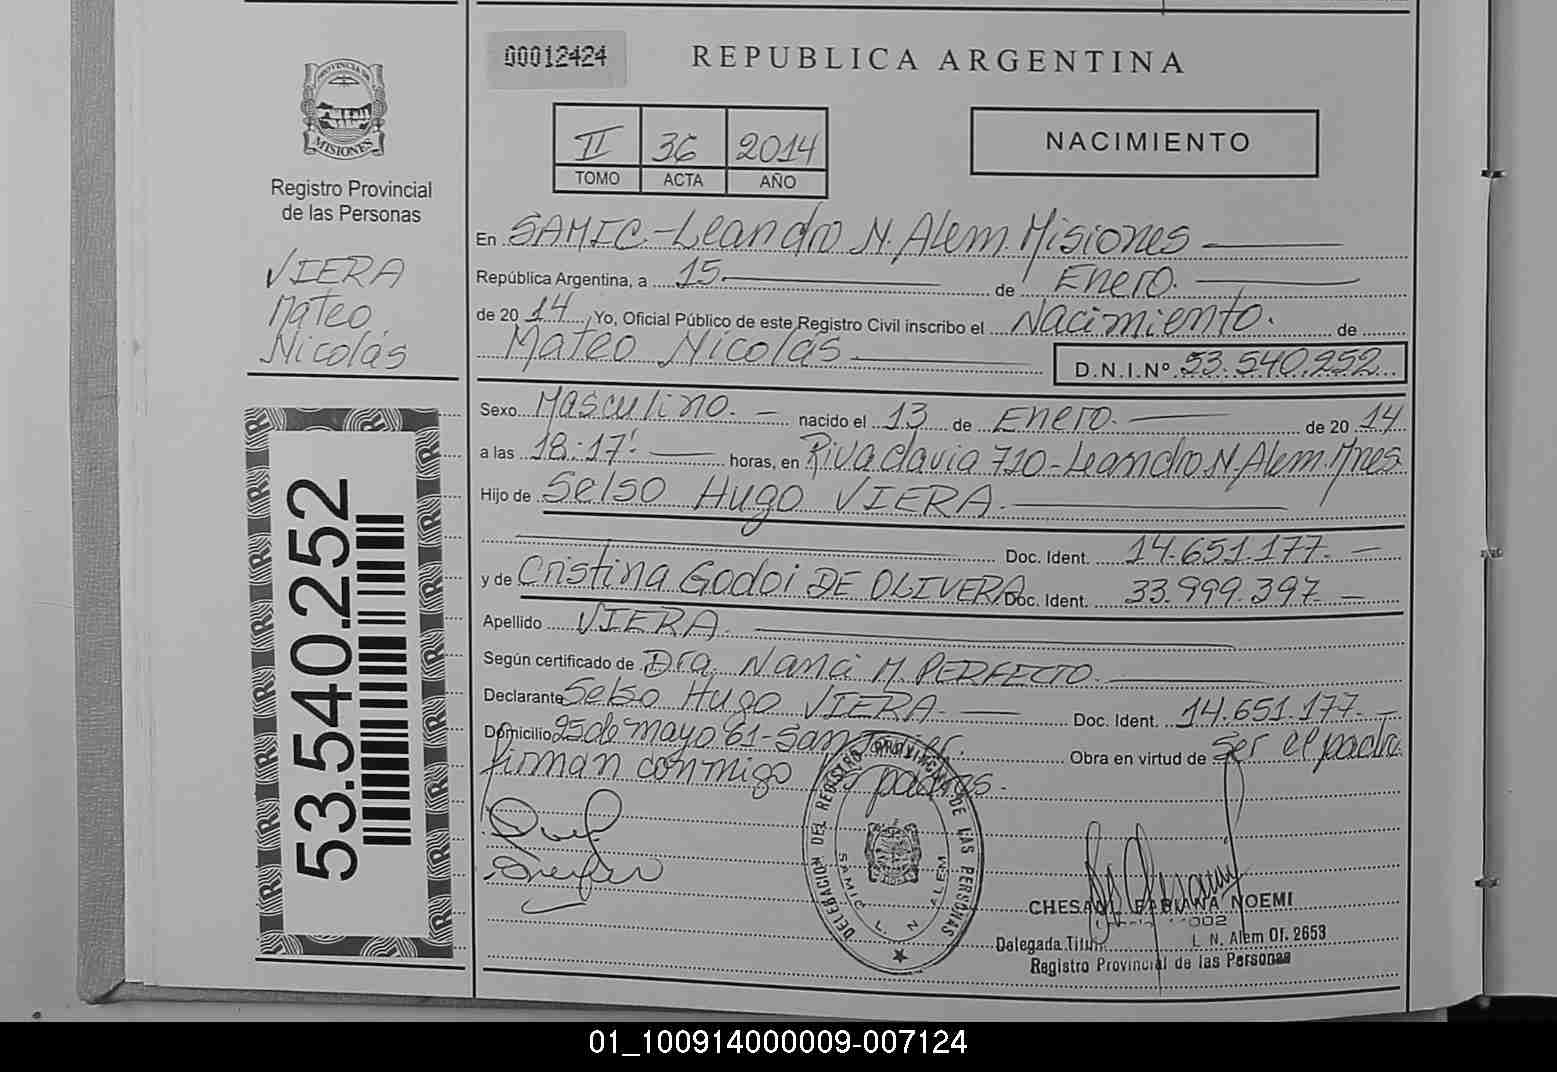 00012424
REPUBLICA ARGENTINA
PROVINCIA DE
MISIONES
Registro Provincial
de las Personas
VIERA
Mateo
Nicolás
53.540.252
II 36 2014
TOMO ACTA AÑO
NACIMIENTO
En SAMIC-Leandro N. Alem. Misiones
República Argentina, a 15 de Enero.
de 2014, Yo, Oficial Público de este Registro Civil inscribo el Nacimiento. de
Mateo Nicolás D.N.I.Nº 53.540.252
Sexo Masculino. nacido el 13 de Enero. de 2014
a las 18:17'. horas, en Rivadavia 710-Leandro N. Alem. Mnes.
Hijo de Selso Hugo VIERA.
Doc. Ident. 14.651.177.
y de Cristina Godoi DE OLIVERA Doc. Ident. 33.999.397
Apellido VIERA.
Según certificado de Dra. Nanci M. PERFECTO.
Declarante Selso Hugo VIERA. Doc. Ident. 14.651.177.
Domicilio 25 de mayo 61-San Javier. Obra en virtud de Ser el padre.
firman conmigo los padres.
DELEGACION DEL REGISTRO PROVINCIAL DE LAS PERSONAS
SAMIC L. N. ALEM
FABIANA NOEMI
Delegada L. N. Alem Of. 2653
Registro Provincial de las Personas
01_100914000009-007124